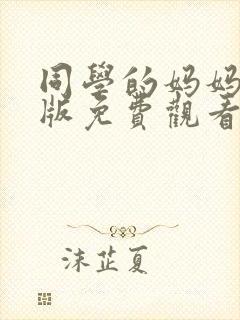 同學的妈妈
版免費觀看
沫芷夏